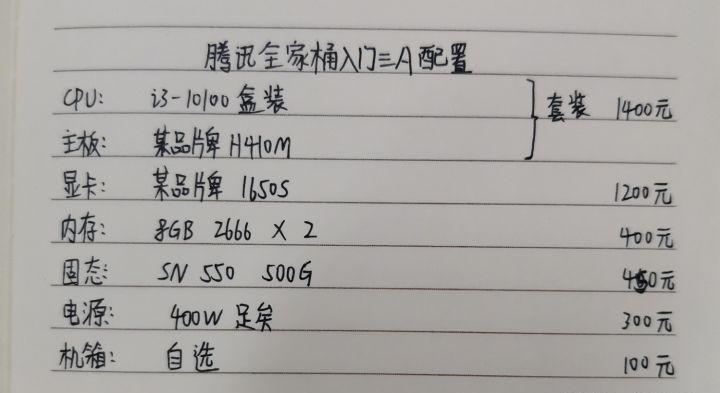 腾讯全家桶入门三A配置
CPU: i3-10100 盒装 套装 1400元
主板: 某品牌 H410M
显卡: 某品牌 1650S 1200元
内存: 8GB 2666 X 2 400元
固态: SN 550 500G 450元
电源: 400W 足矣 300元
机箱: 自选 100元